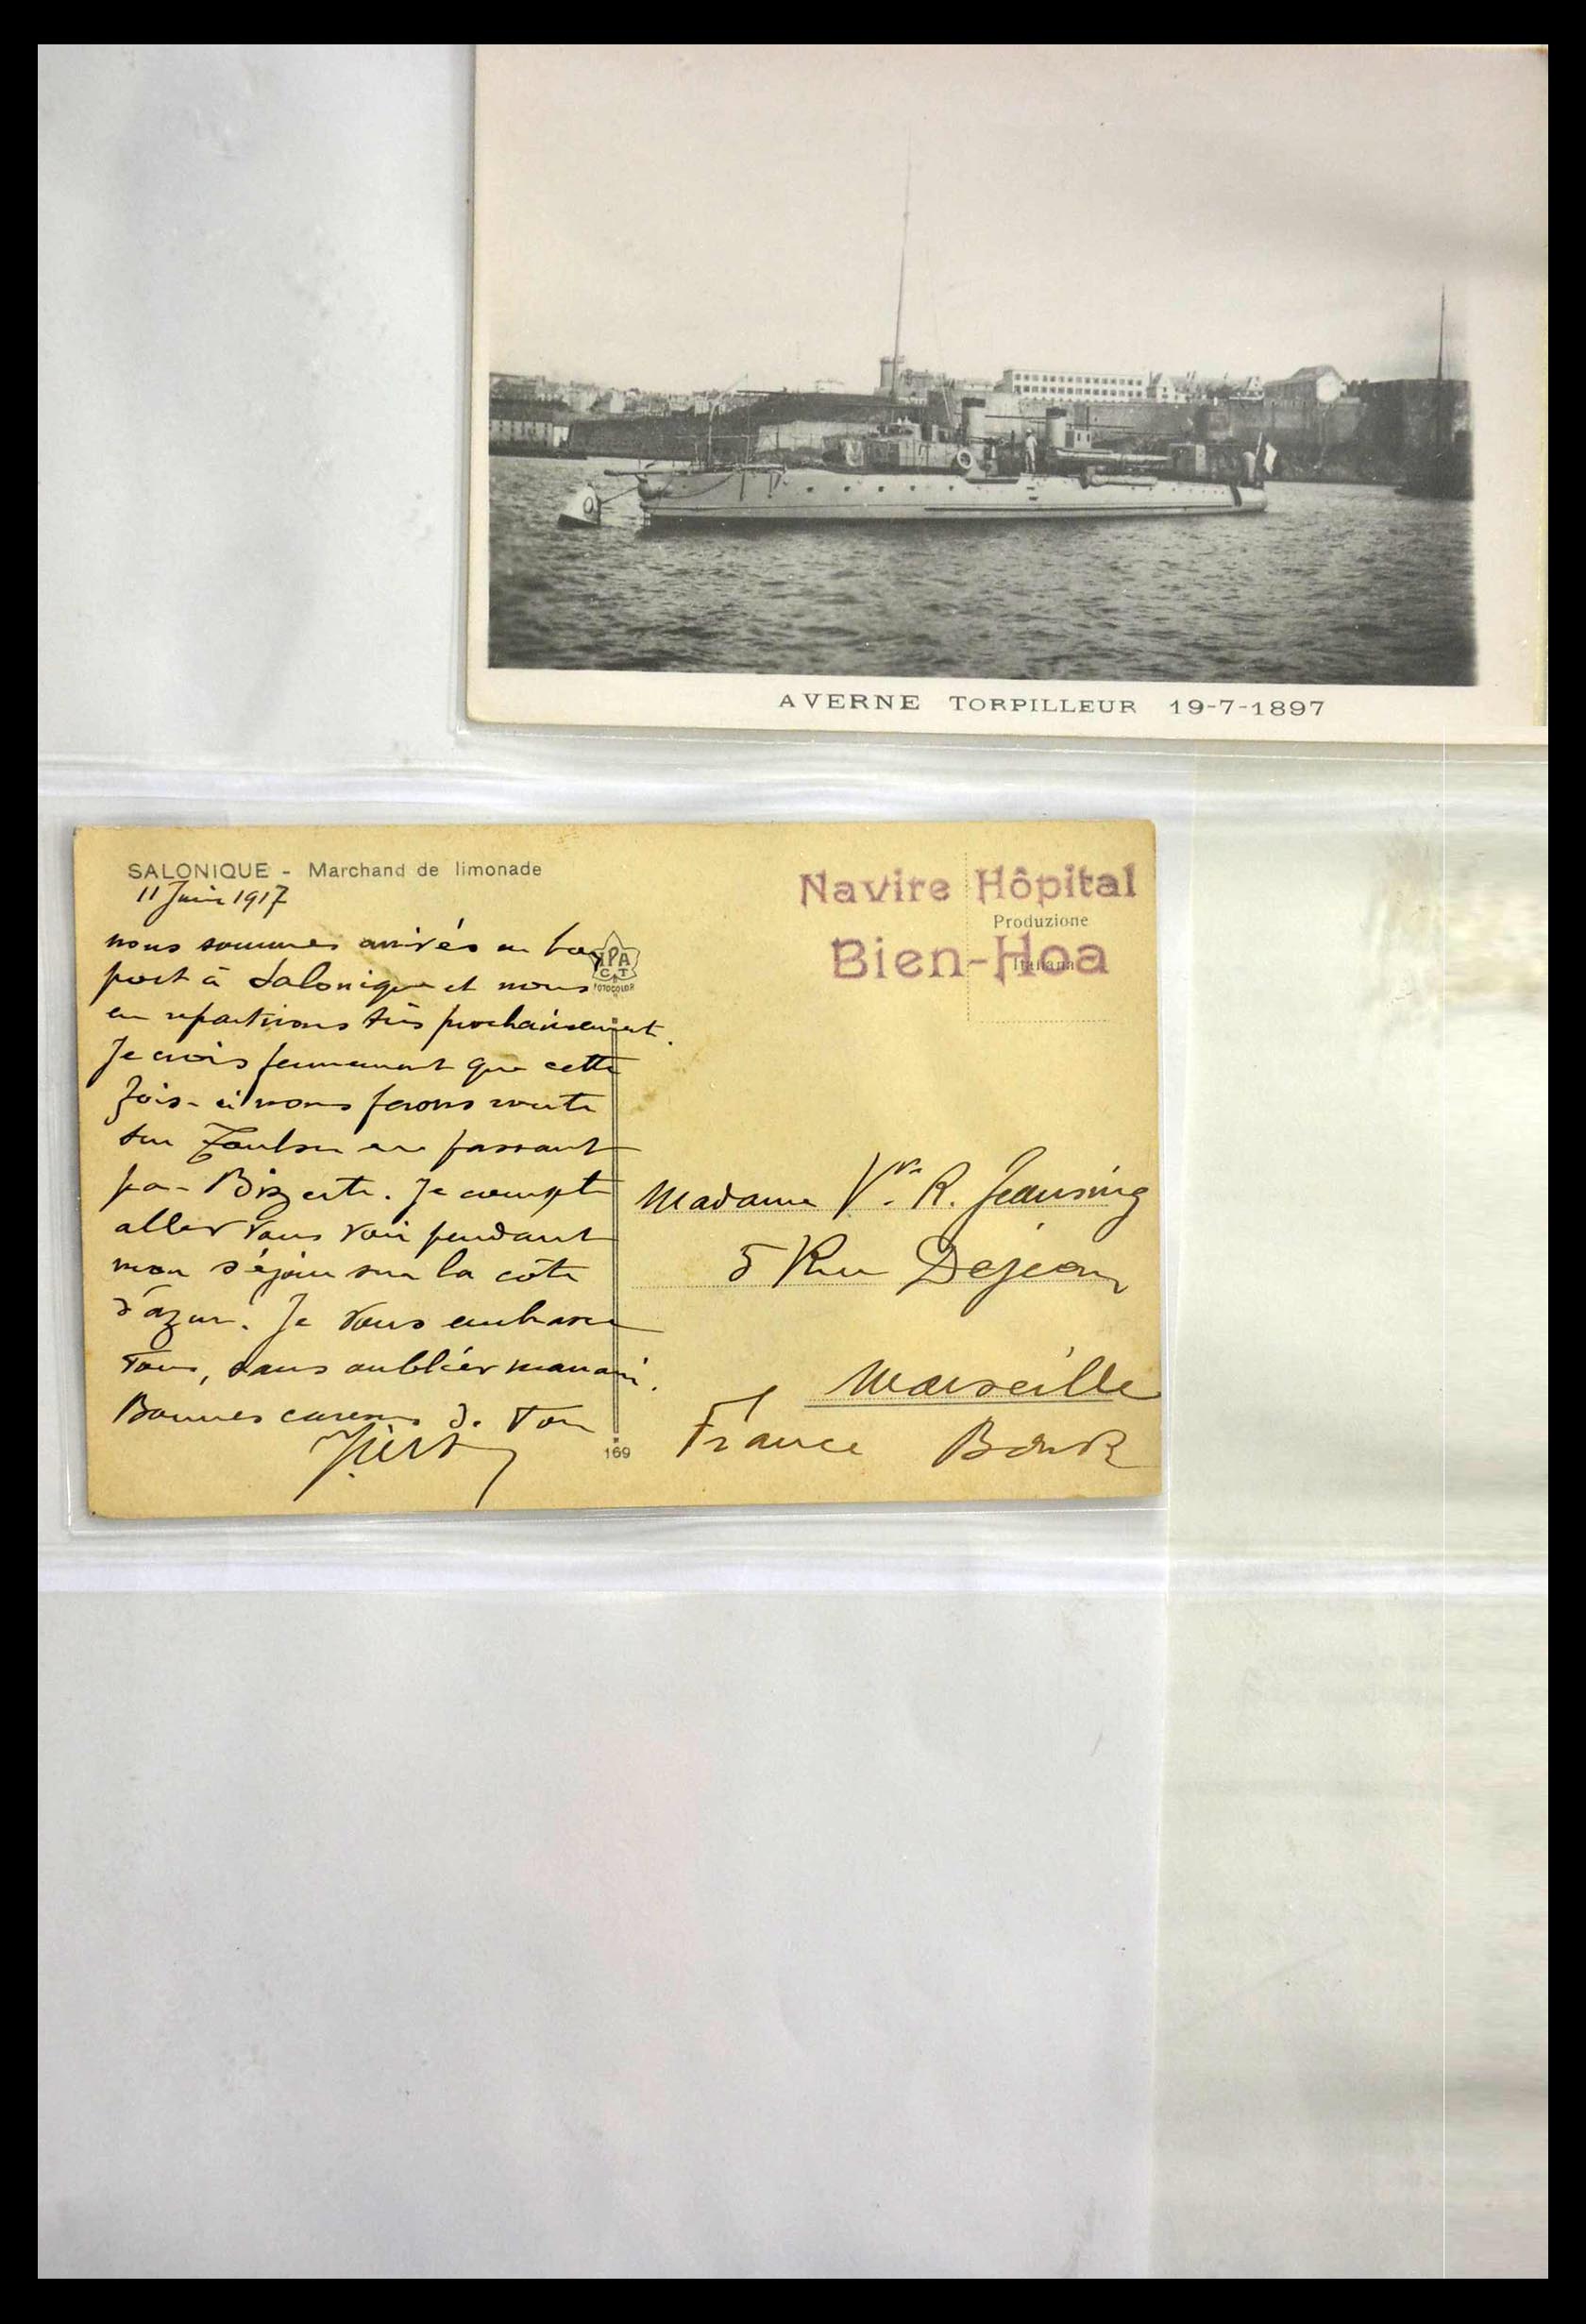 AVERNE TORPILLEUR 19-7-1897
SALONIQUE - Marchand de limonade
11 Juin 1917
nous sommes arrivés à bon
port à Salonique et nous
en repartirons très prochainement.
Je crois fermement que cette
fois-ci nous ferons route
sur Toulon en passant
par Bizerte. Je compte
aller vous voir pendant
mon séjour sur la côte
d'azur. Je vous embrasse
tous, sans oublier manani.
Bonnes caresses de ton
IPA
CT
FOTOCOLOR
169
Navire Hôpital
Produzione
Bien-Hoa
Italiana
Madame Vve R.
5 Rue Dejean
Marseille
France